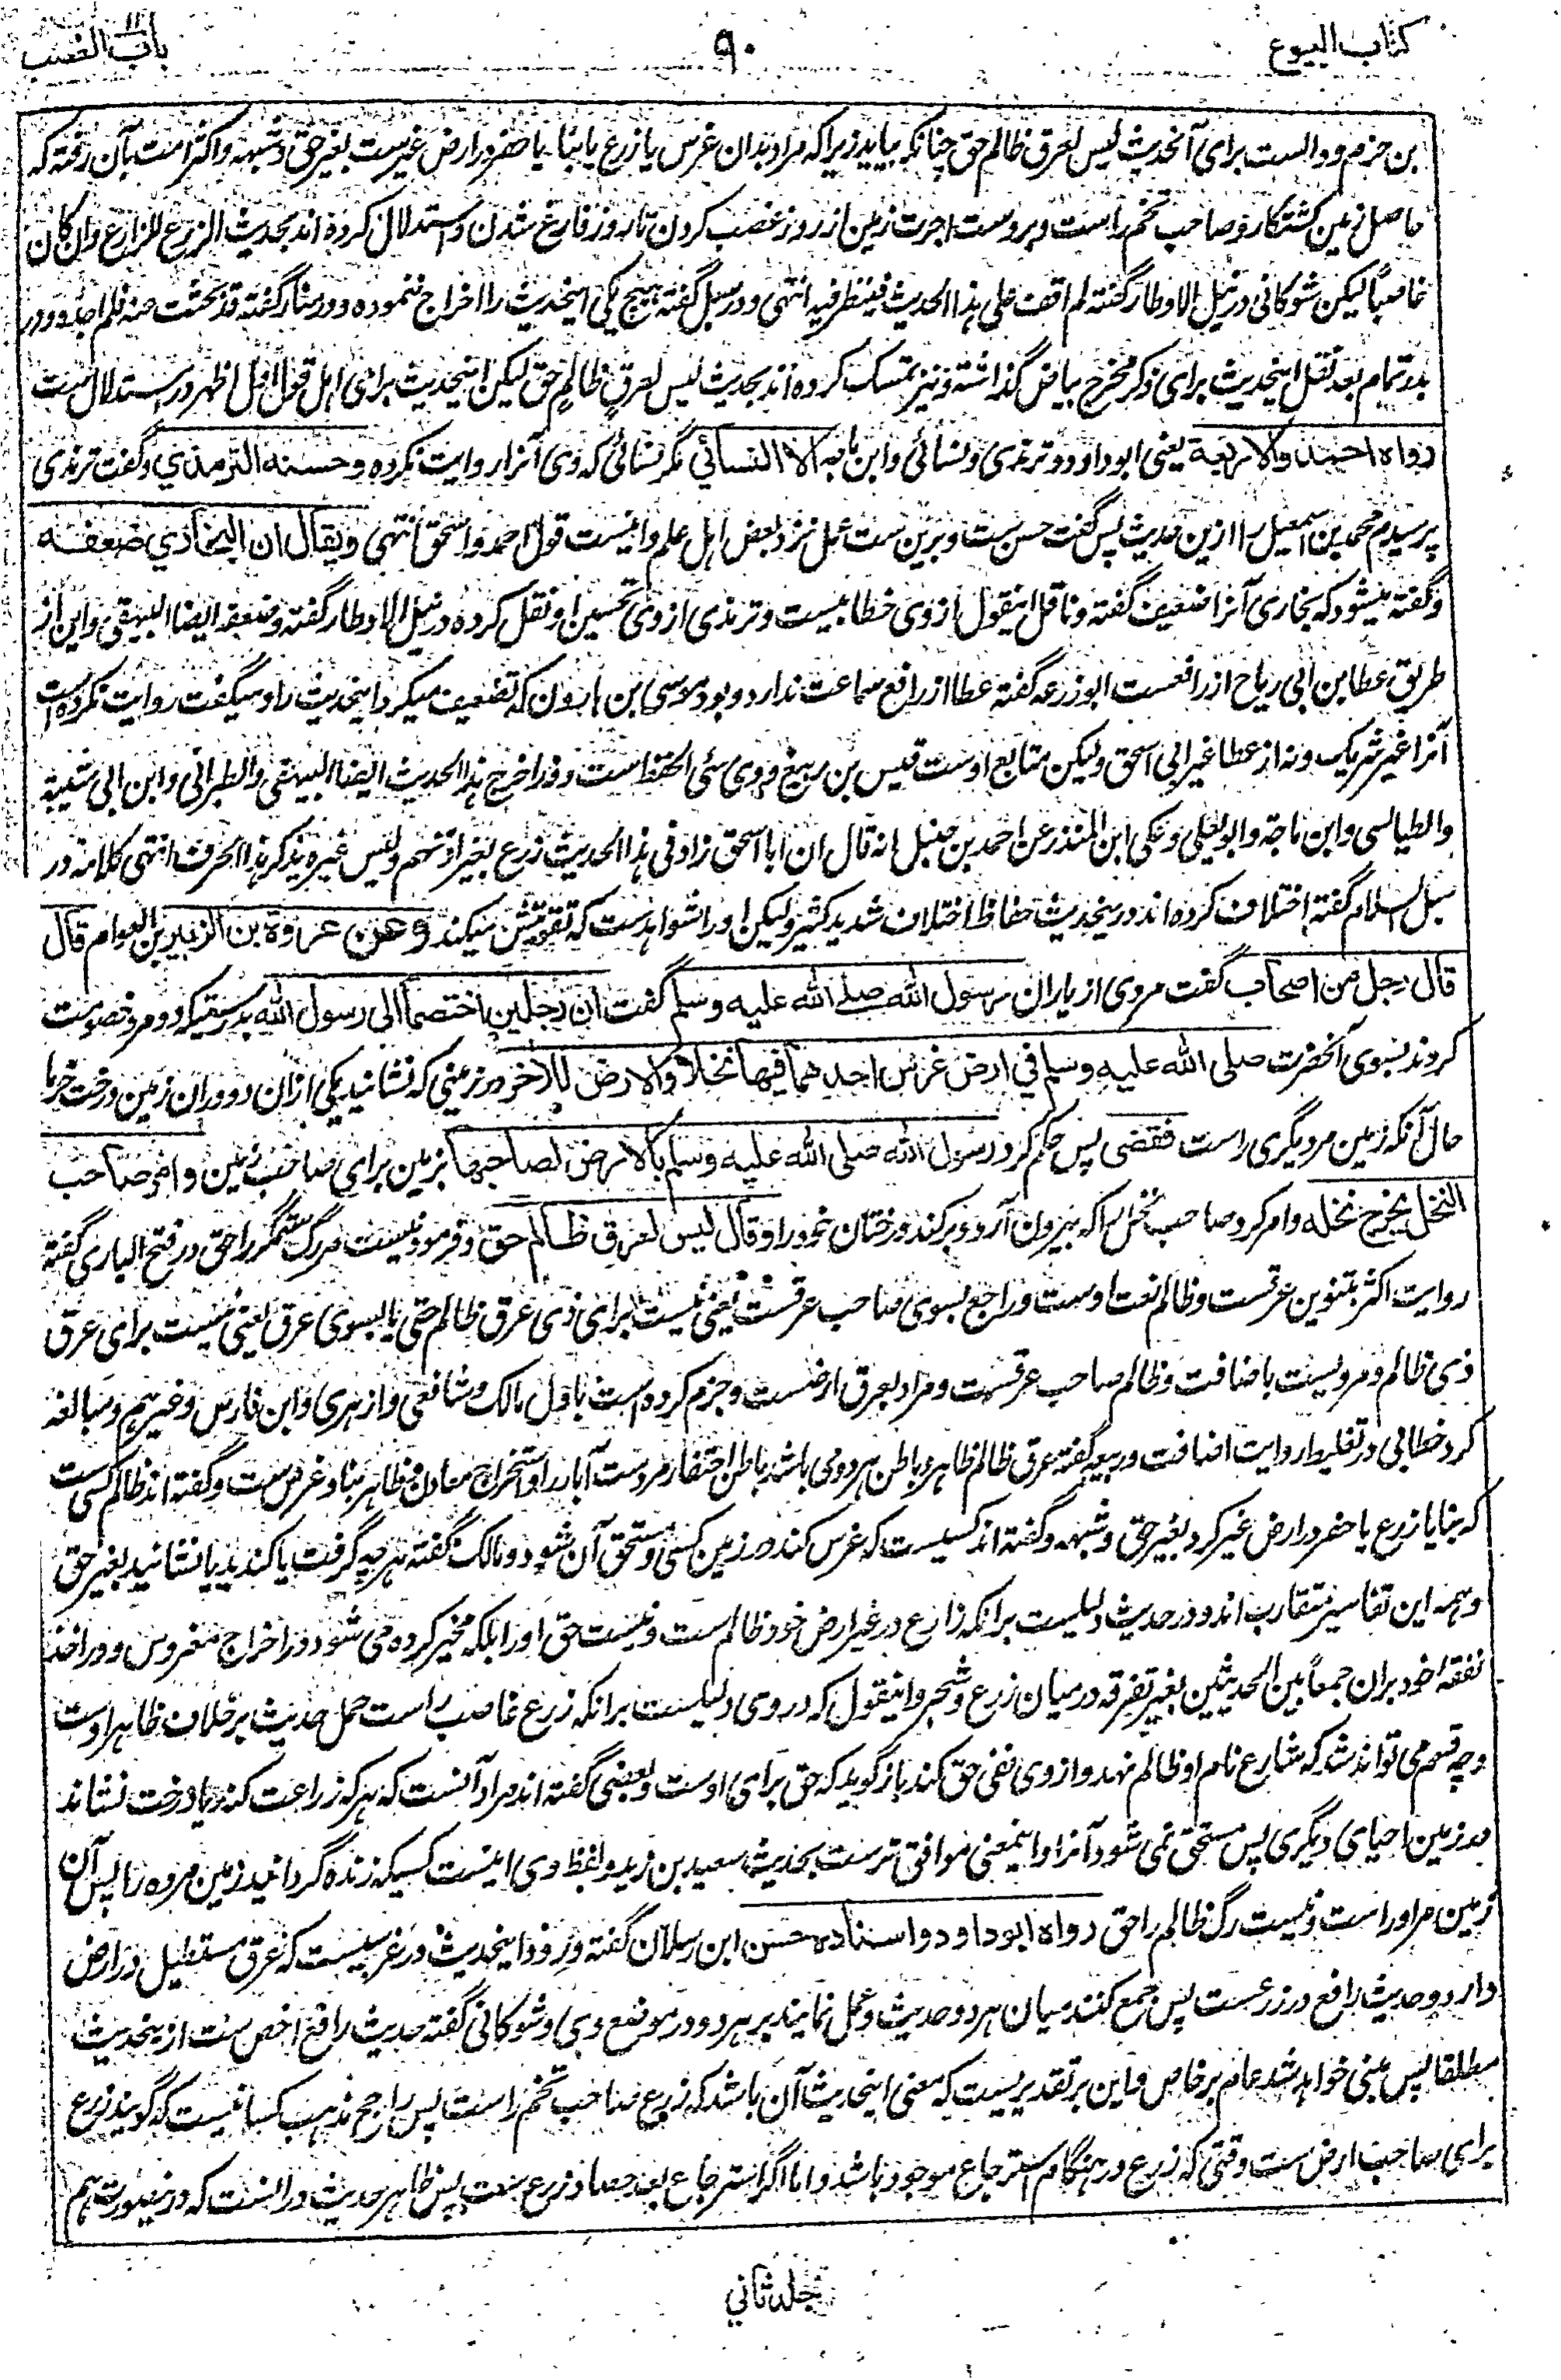 کتاب البیوع
۹۰
باب الغصب
بن حزم و دالست برای آن حدیث لیس لعرق ظالم حق چنانکه بیاید زیرا که مراد بدان غرس یا زرع یا بنا یا حفر در ارض غیرست بغیر حق و شبهه و اکثر امت بآن رفته که
حاصل زمین کشتکار و صاحب تخم راست و بروست اجرت زمین از روز غصب کردن تا روز فارغ شدن و استدلال کرده اند بحدیث الزرع للزارع وان کان
غاصباً لیکن شوکانی در نیل الاوطار گفته لم اقف علی هذا الحدیث فینظر فیه انتهی و در سبل گفته هیچ یکی اینحدیث را اخراج ننموده و در منار گفته قد بحثت عنه فلم اجده و در
بدر تمام بعد نقل اینحدیث برای ذکر مخرج بیاض گذاشته و نیز تمسک کرده اند بحدیث لیس لعرق ظالم حق لیکن اینحدیث برای اهل قول اول اظهر در استدلال ست
رواه احمد والاربعة یعنی ابوداود و ترمذی و نسائی و ابن ماجه الا النسائي مگر نسائی که وی آنرا روایت نکرده وحسنه الترمذي و گفت ترمذی
پرسیدم محمد بن اسمعیل را ازین حدیث پس گفت حسن ست و برین ست عمل نزد بعض اهل علم و اینست قول احمد و اسحق انتهی ویقال ان البخاري ضعفه
و گفته میشود که بخاری آنرا ضعیف گفته و ناقل اینقول از وی خطابیست و ترمذی از وی تحسین او نقل کرده در نیل الاوطار گفته وضعفه ایضا البیهقی و این از
طریق عطا بن ابی رباح از رافعست ابوزرعه گفته عطا از رافع سماعت ندارد و بود موسی بن هارون که تضعیف میکرد اینحدیث را و میگفت روایت نکرده است
آنرا غیر شریک و نه از عطا غیر ابی اسحق ولیکن متابع اوست قیس بن ربیع و وی سئی الحفظ است وقد اخرج هذا الحدیث ایضا البیهقی والطبرانی وابن ابی شیبة
والطیالسی وابن ماجة وابویعلی وحکی ابن المنذر عن احمد بن حنبل انه قال ان ابا اسحق زاد فی هذا الحدیث زرع بغیر اذنهم ولیس غیره یذکر هذا الحرف انتهی کلامه در
سبل السلام گفته اختلاف کرده اند در اینحدیث حفاظ اختلاف شدید کثیر ولیکن او را شواهدست که تقویتش میکند وعن عروة بن الزبیر بن العوام قال
قال رجل من اصحاب گفت مردی از یاران رسول الله صلی الله علیه وسلم گفت ان رجلین اختصما الی رسول الله بدرستیکه دو مرد خصومت
کردند بسوی آنحضرت صلی الله علیه وسلم في ارض غرس احدهما فیها نخلا والارض للاخر در زمینی که نشانید یکی ازان دو دران زمین درخت خرما
حال آنکه زمین مر دیگری راست فقضی پس حکم کرد رسول الله صلی الله علیه وسلم بالارض لصاحبها بزمین برای صاحب زمین وامر صاحب
النخل یخرج نخله و امر کرد صاحب نخل را که بیرون آرد و برکند درختان خود را وقال لیس لعرق ظالم حق و فرمود نیست مر رگ ستمگر را حق در فتح الباری گفته
روایت اکثر بتنوین عرقست و ظالم نعت اوست و راجع بسوی صاحب عرقست یعنی نیست برای ذی عرق ظالم حقی یا بسوی عرق یعنی نیست برای عرق
ذی ظالم و مرویست باضافت و ظالم صاحب عرقست و مراد بعرق ارضست و جزم کرده است باول مالک و شافعی و ازهری و ابن فارس و غیرهم و مبالغه
کرد خطابی در تغلیط روایت اضافت و ربیعه گفته عرق ظالم ظاهر و باطن هر دو می باشد باطن احتفار مردست آبار را و استخراج معادن و ظاهر بنا و غرس ست و گفته اند ظالم کسی ست
که بنا یا زرع یا حفر در ارض غیر کرد بغیر حق و شبهه و گفته اند کسیست که غرس کند در زمین کسی و مستحق آن شود و مالک گفته هر چه گرفت یا کندید یا نشانید بغیر حق
و همه این تفاسیر متقارب اند و در حدیث دلیلست برانکه زارع در غیر ارض خود ظالم ست و نیست حق او را بلکه مخیر کرده می شود در اخراج مغروس و در اخذ
نفقه خود بران جمعاً بین الحدیثین بغیر تفرقه در میان زرع و شجر و اینقول که در وی دلیلست برانکه زرع غاصب راست حمل حدیث بر خلاف ظاهر اوست
و چه قسم می تواند شد که شارع نام او ظالم نهد و از وی نفی حق کند باز گوید که حق برای اوست و بعضی گفته اند مراد آنست که هر که زراعت کند یا درخت نشاند
در زمین احیای دیگری پس مستحق نمی شود آنرا و اینمعنی موافق ترست بحدیث سعید بن زید و لفظ وی اینست کسیکه زنده گردانید زمین مرده را پس آن
زمین مر او راست و نیست رگ ظالم را حق رواه ابوداود واسناده حسن ابن رسلان گفته ورود اینحدیث در غرسیست که عرق مستطیل در ارض
دارد و حدیث رافع در زرعست پس جمع کنند میان هر دو حدیث و عمل نمایند بر هر دو در موضع وی و شوکانی گفته حدیث رافع اخص ست از اینحدیث
مطلقا پس مبنی خواهد شد عام بر خاص و این بر تقدیریست که معنی اینحدیث آن باشد که زرع صاحب تخم راست پس راجح مذهب کسانیست که گویند زرع
برای صاحب ارض ست وقتی که زرع در هنگام استرجاع موجود باشد و اما اگر استرجاع بعد حصاد زرع ست پس ظاهر حدیث دالست که درینصورت هم
جلد ثانی